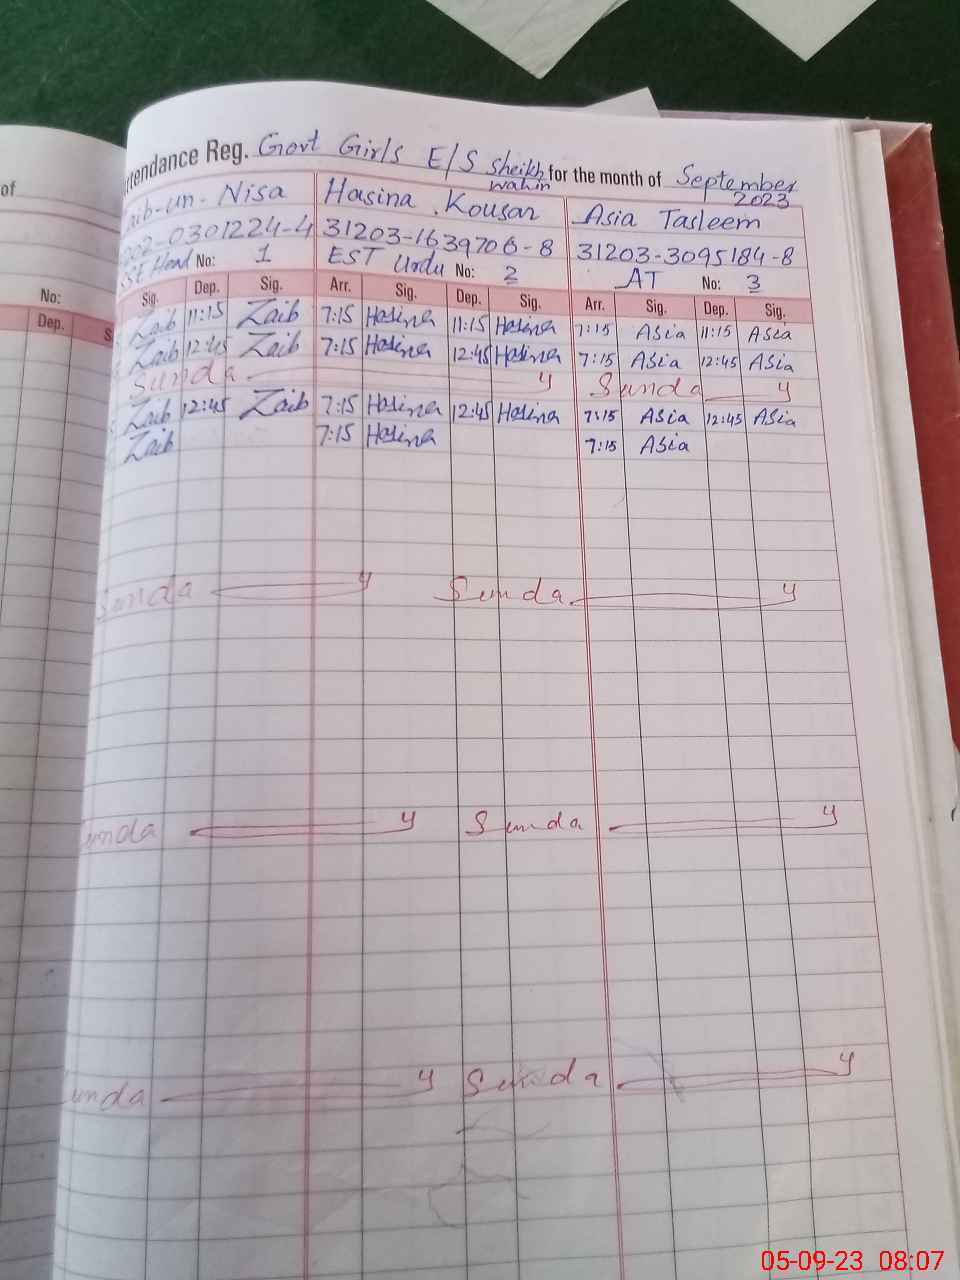 of
ttendance Reg. Govt Girls E/S Sheikh wahin for the month of September 2023
aib-un-Nisa Hasina Kousar Asia Tasleem
002-0301224-4 31203-1639706-8 31203-3095184-8
SST Head No: 1 EST Urdu No: 2 AT No: 3
No:
Sig. Dep. Sig. Arr. Sig. Dep. Sig. Arr. Sig. Dep. Sig.
Dep. S
Zaib 11:15 Zaib 7:15 Hasina 11:15 Hasina 7:15 Asia 11:15 Asia
Zaib 12:45 Zaib 7:15 Hasina 12:45 Hasina 7:15 Asia 12:45 Asia
Sunda y Sunda y
Zaib 12:45 Zaib 7:15 Hasina 12:45 Hasina 7:15 Asia 12:45 Asia
Zaib 7:15 Hasina 7:15 Asia
Sunda y Sunda y
unda y Sunda y
unda y Sunda y
05-09-23 08:07